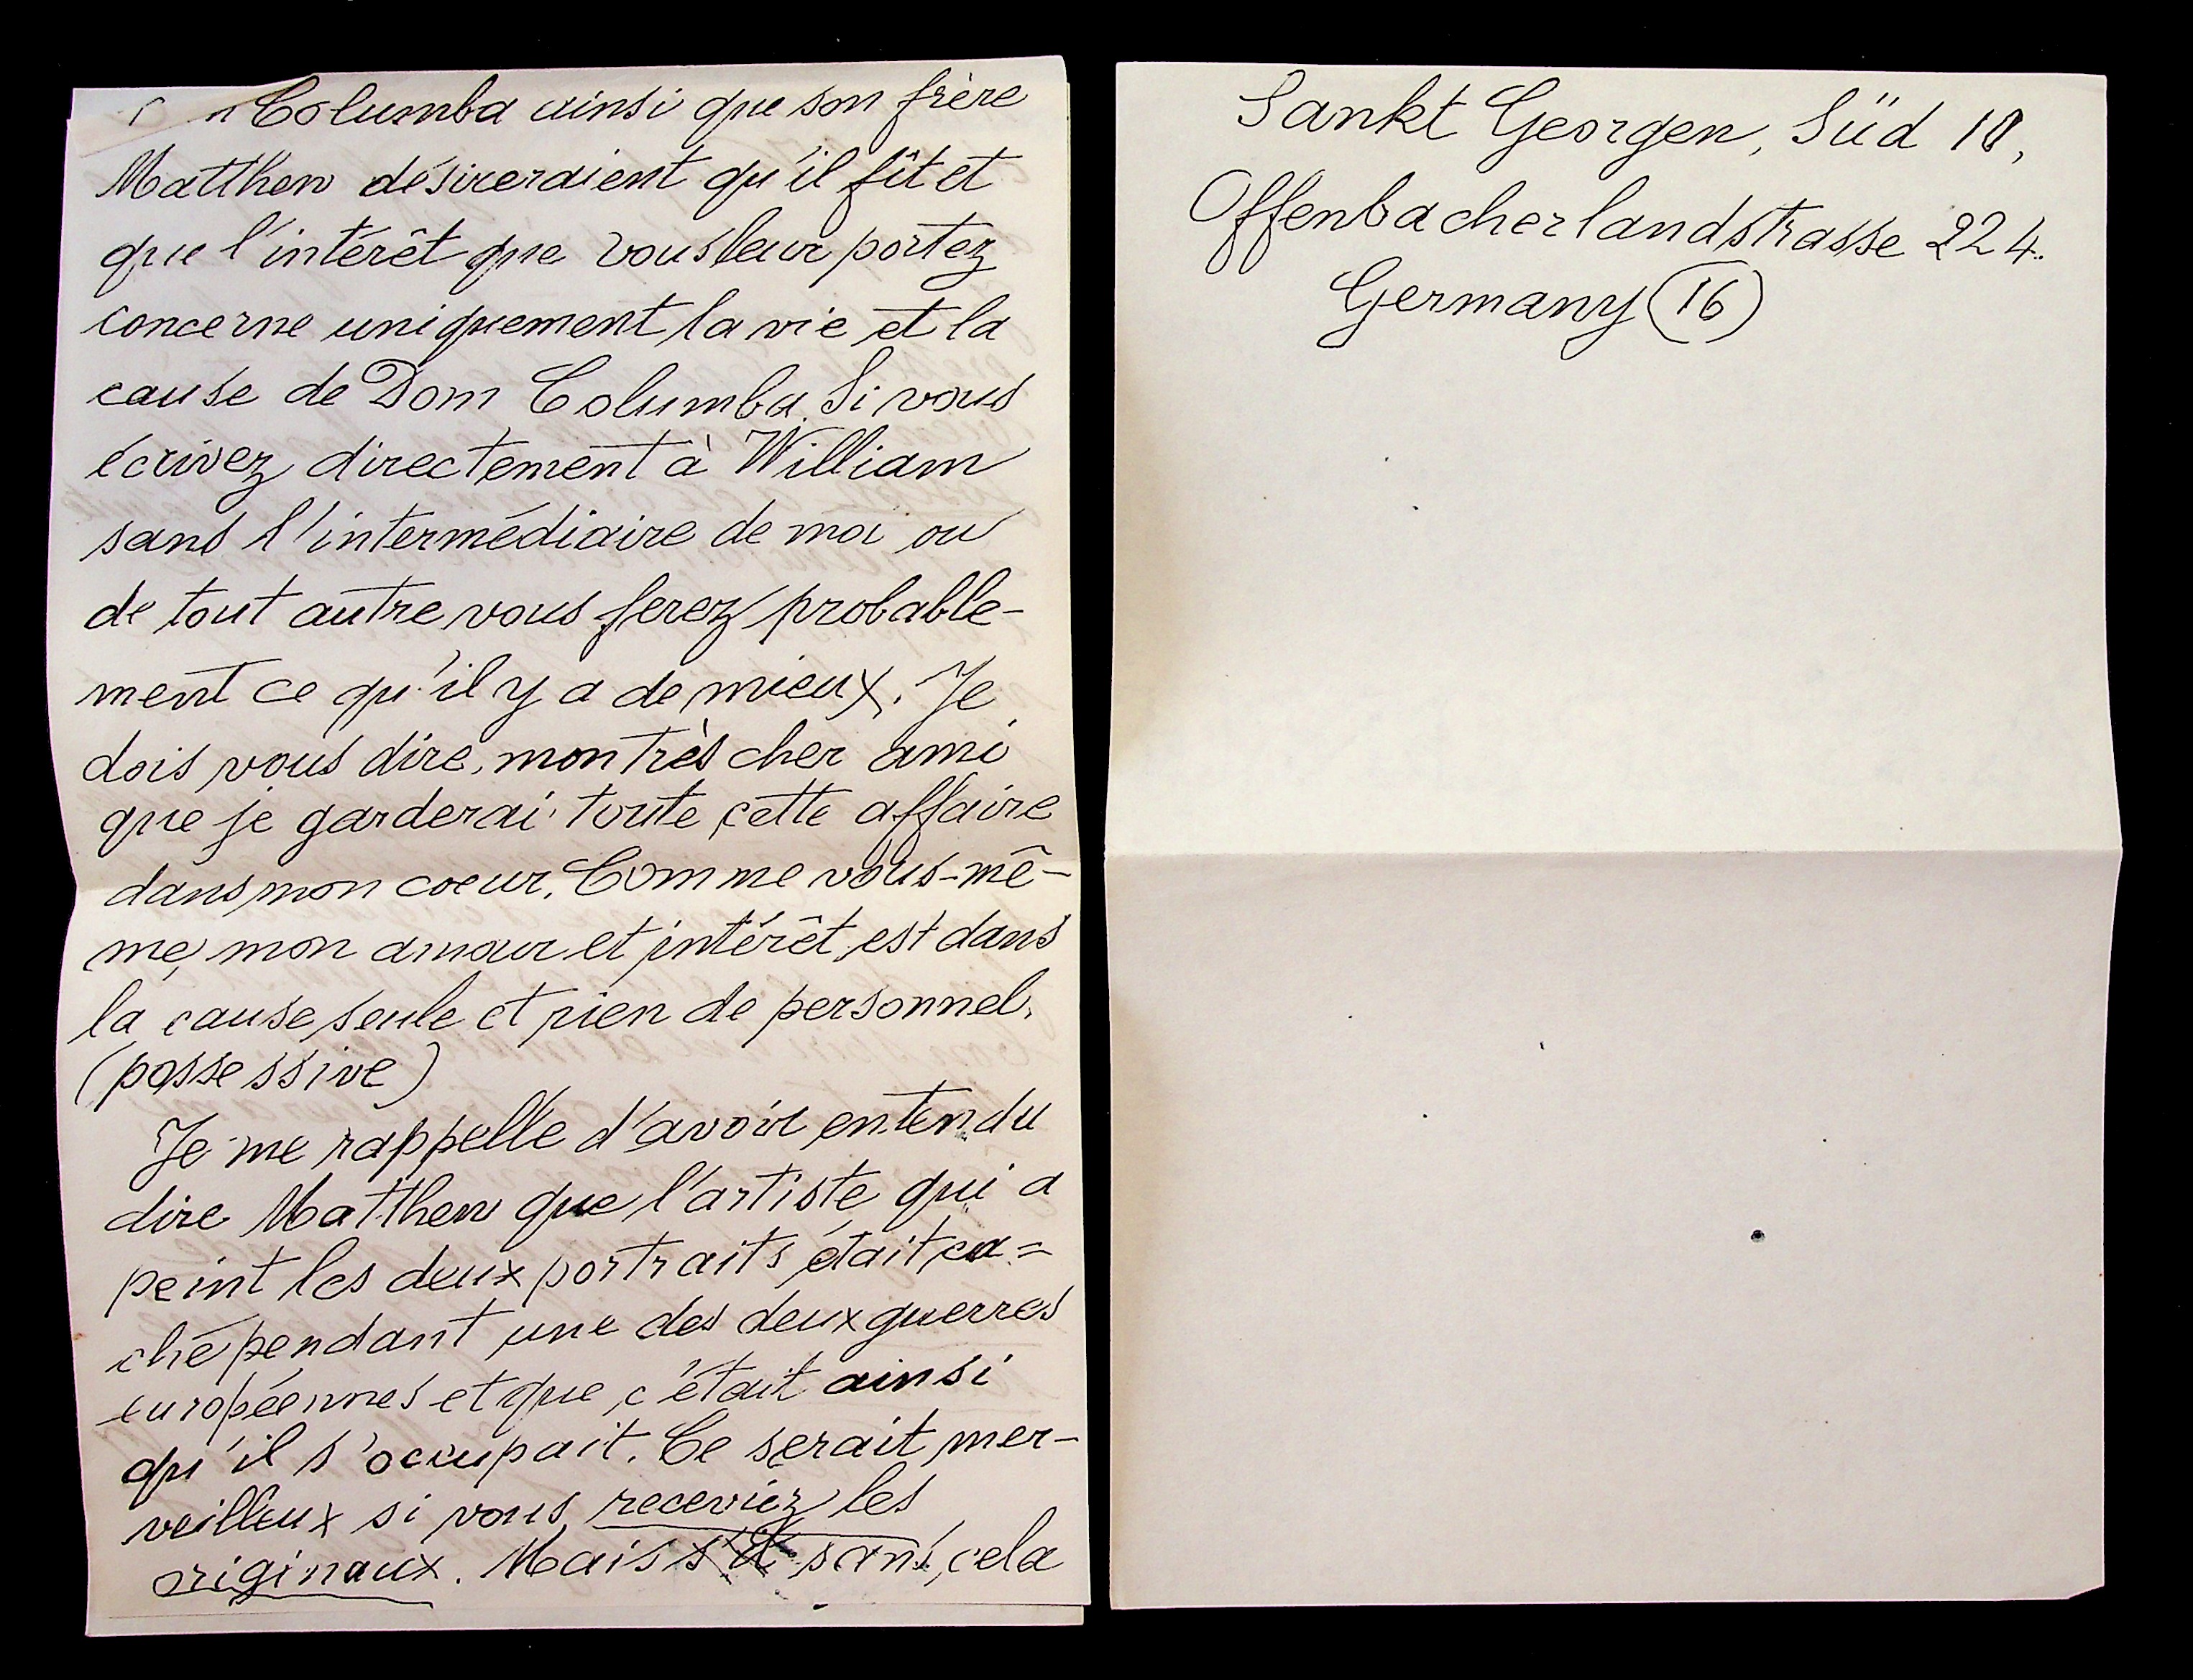 Columba ainsi que son frère
Matthew désireraient qu'il fît et
que l'intérêt que vous leur portez
concerne uniquement la vie et la
cause de Dom Columba. Si vous
écrivez directement à William
sans l'intermédiaire de moi ou
de tout autre vous ferez probable-
ment ce qu'il y a de mieux. Je
dois vous dire, mon très cher ami
que je garderai toute cette affaire
dans mon coeur. Comme vous-mê-
me, mon amour et intérêt est dans
la cause seule et rien de personnel.
(possessive)
Je me rappelle d'avoir entendu
dire Matthew que l'artiste qui a
peint les deux portraits était ca=
ché pendant une des deux guerres
européennes et que c'était ainsi
qu'il s'occupait. Ce serait mer-
veilleux si vous receviez les
originaux. Mais sans cela
Sankt Georgen, Süd 10,
Offenbacherlandstrasse 224.
Germany (16)